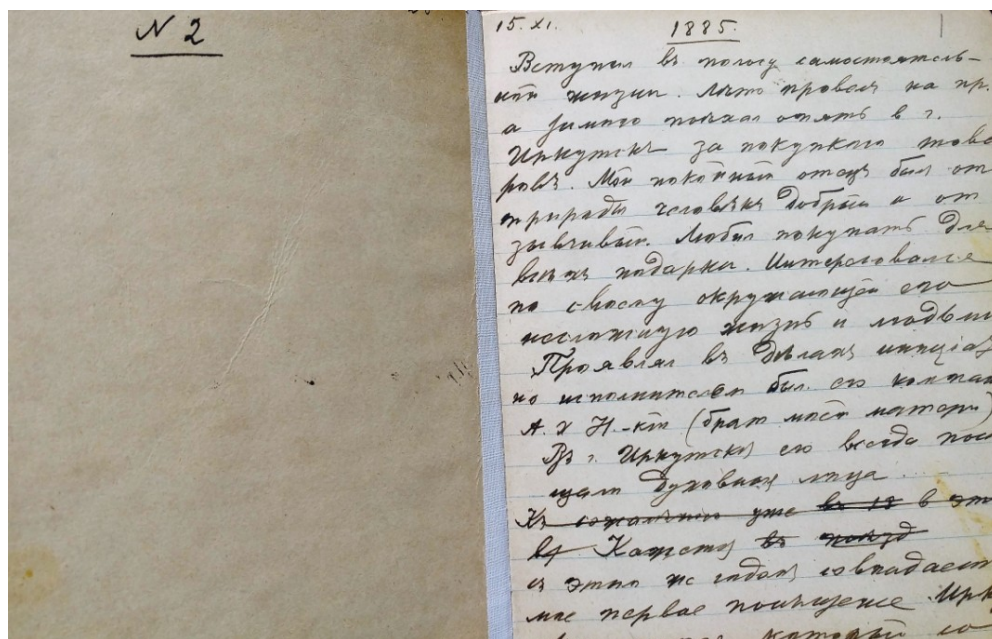 N 2
15. XI. 1885.
Вступил въ полосу самостоятель-
ной жизни. Лѣто провелъ на пр.
а зимою поѣхал опять в г.
Иркутскъ за покупкою това
ровъ. Мой покойный отецъ был от
природы человѣкъ добрый и от
зывчивый. Любил покупать для
всѣхъ подарки. Интересовался
по своему окружающей его
несложную жизнь и людьми
Проявлял въ дѣлахъ инициа
но исполнителем был его компан
А. Х Н-кій (брат моей матери)
Въ г. Иркутскѣ его всегда посѣ
щали духовныя лица.
Къ сожалѣнію уже въ 18 в эт
Кажется въ
съ этим же годом совпадает
мое первое посѣщение Ирк
который со